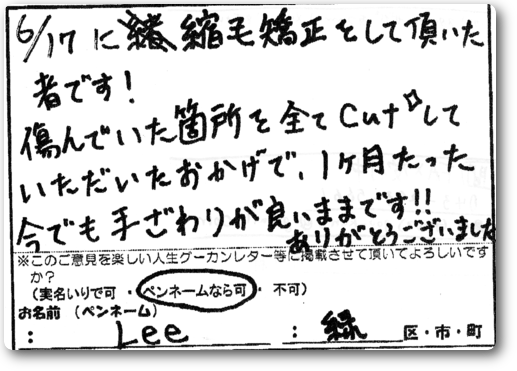 6/17に縮毛矯正をして頂いた
者です!
傷んでいた箇所を全てCutして
いただいたおかげで、1ヶ月たった
今でも手ざわりが良いままです!!
ありがとうございました
※このご意見を楽しい人生グーカンレター等に掲載させて頂いてよろしいです
か?
(実名いりで可・ペンネームなら可・不可)
お名前(ペンネーム)
: Lee : 緑 区・市・町